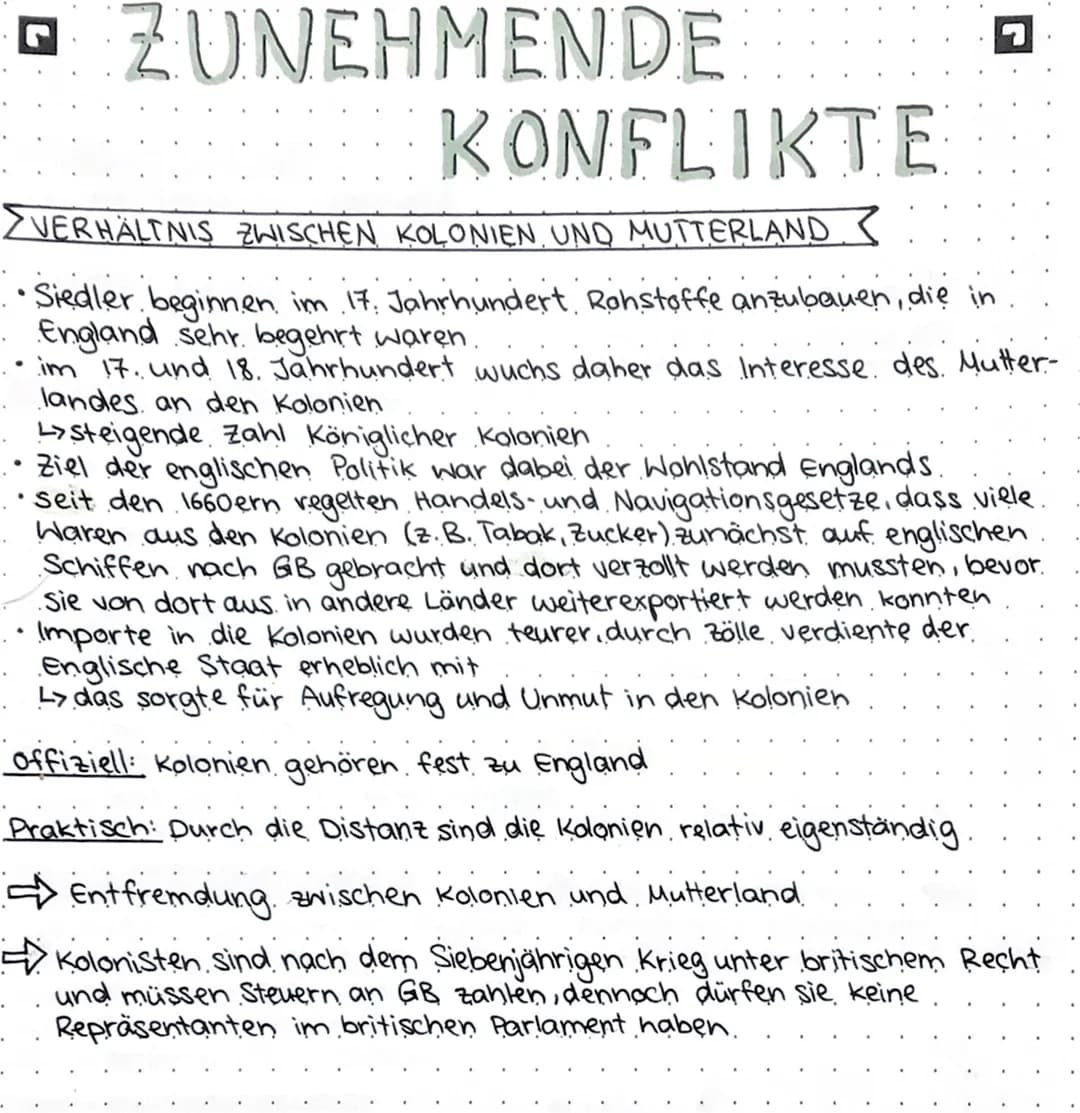 ZUNEHMENDE
KONFLIKTE
VERHÄLTNIS ZWISCHEN KOLONIEN UND MUTTERLAND
• Siedler beginnen im 17. Jahrhundert Rohstoffe anzubauen, die in
England sehr begehrt waren
• im 17. und 18. Jahrhundert wuchs daher das Interesse des Mutter-
landes an den Kolonien
↳ steigende Zahl Königlicher Kolonien
• Ziel der englischen Politik war dabei der Wohlstand Englands
• seit den 1660ern regelten Handels- und Navigationsgesetze, dass viele
Waren aus den Kolonien (z.B. Tabak, Zucker) zunächst auf englischen
Schiffen nach GB gebracht und dort verzollt werden mussten, bevor
sie von dort aus in andere Länder weiterexportiert werden konnten
• Importe in die Kolonien wurden teurer, durch Zölle verdiente der
Englische Staat erheblich mit
↳ das sorgte für Aufregung und Unmut in den Kolonien
Offiziell: Kolonien gehören fest zu England
Praktisch: Durch die Distanz sind die Kolonien relativ eigenständig
⇒ Entfremdung zwischen Kolonien und Mutterland
⇒ Kolonisten sind nach dem Siebenjährigen Krieg unter britischem Recht
und müssen Steuern an GB zahlen, dennoch dürfen sie keine
Repräsentanten im britischen Parlament haben